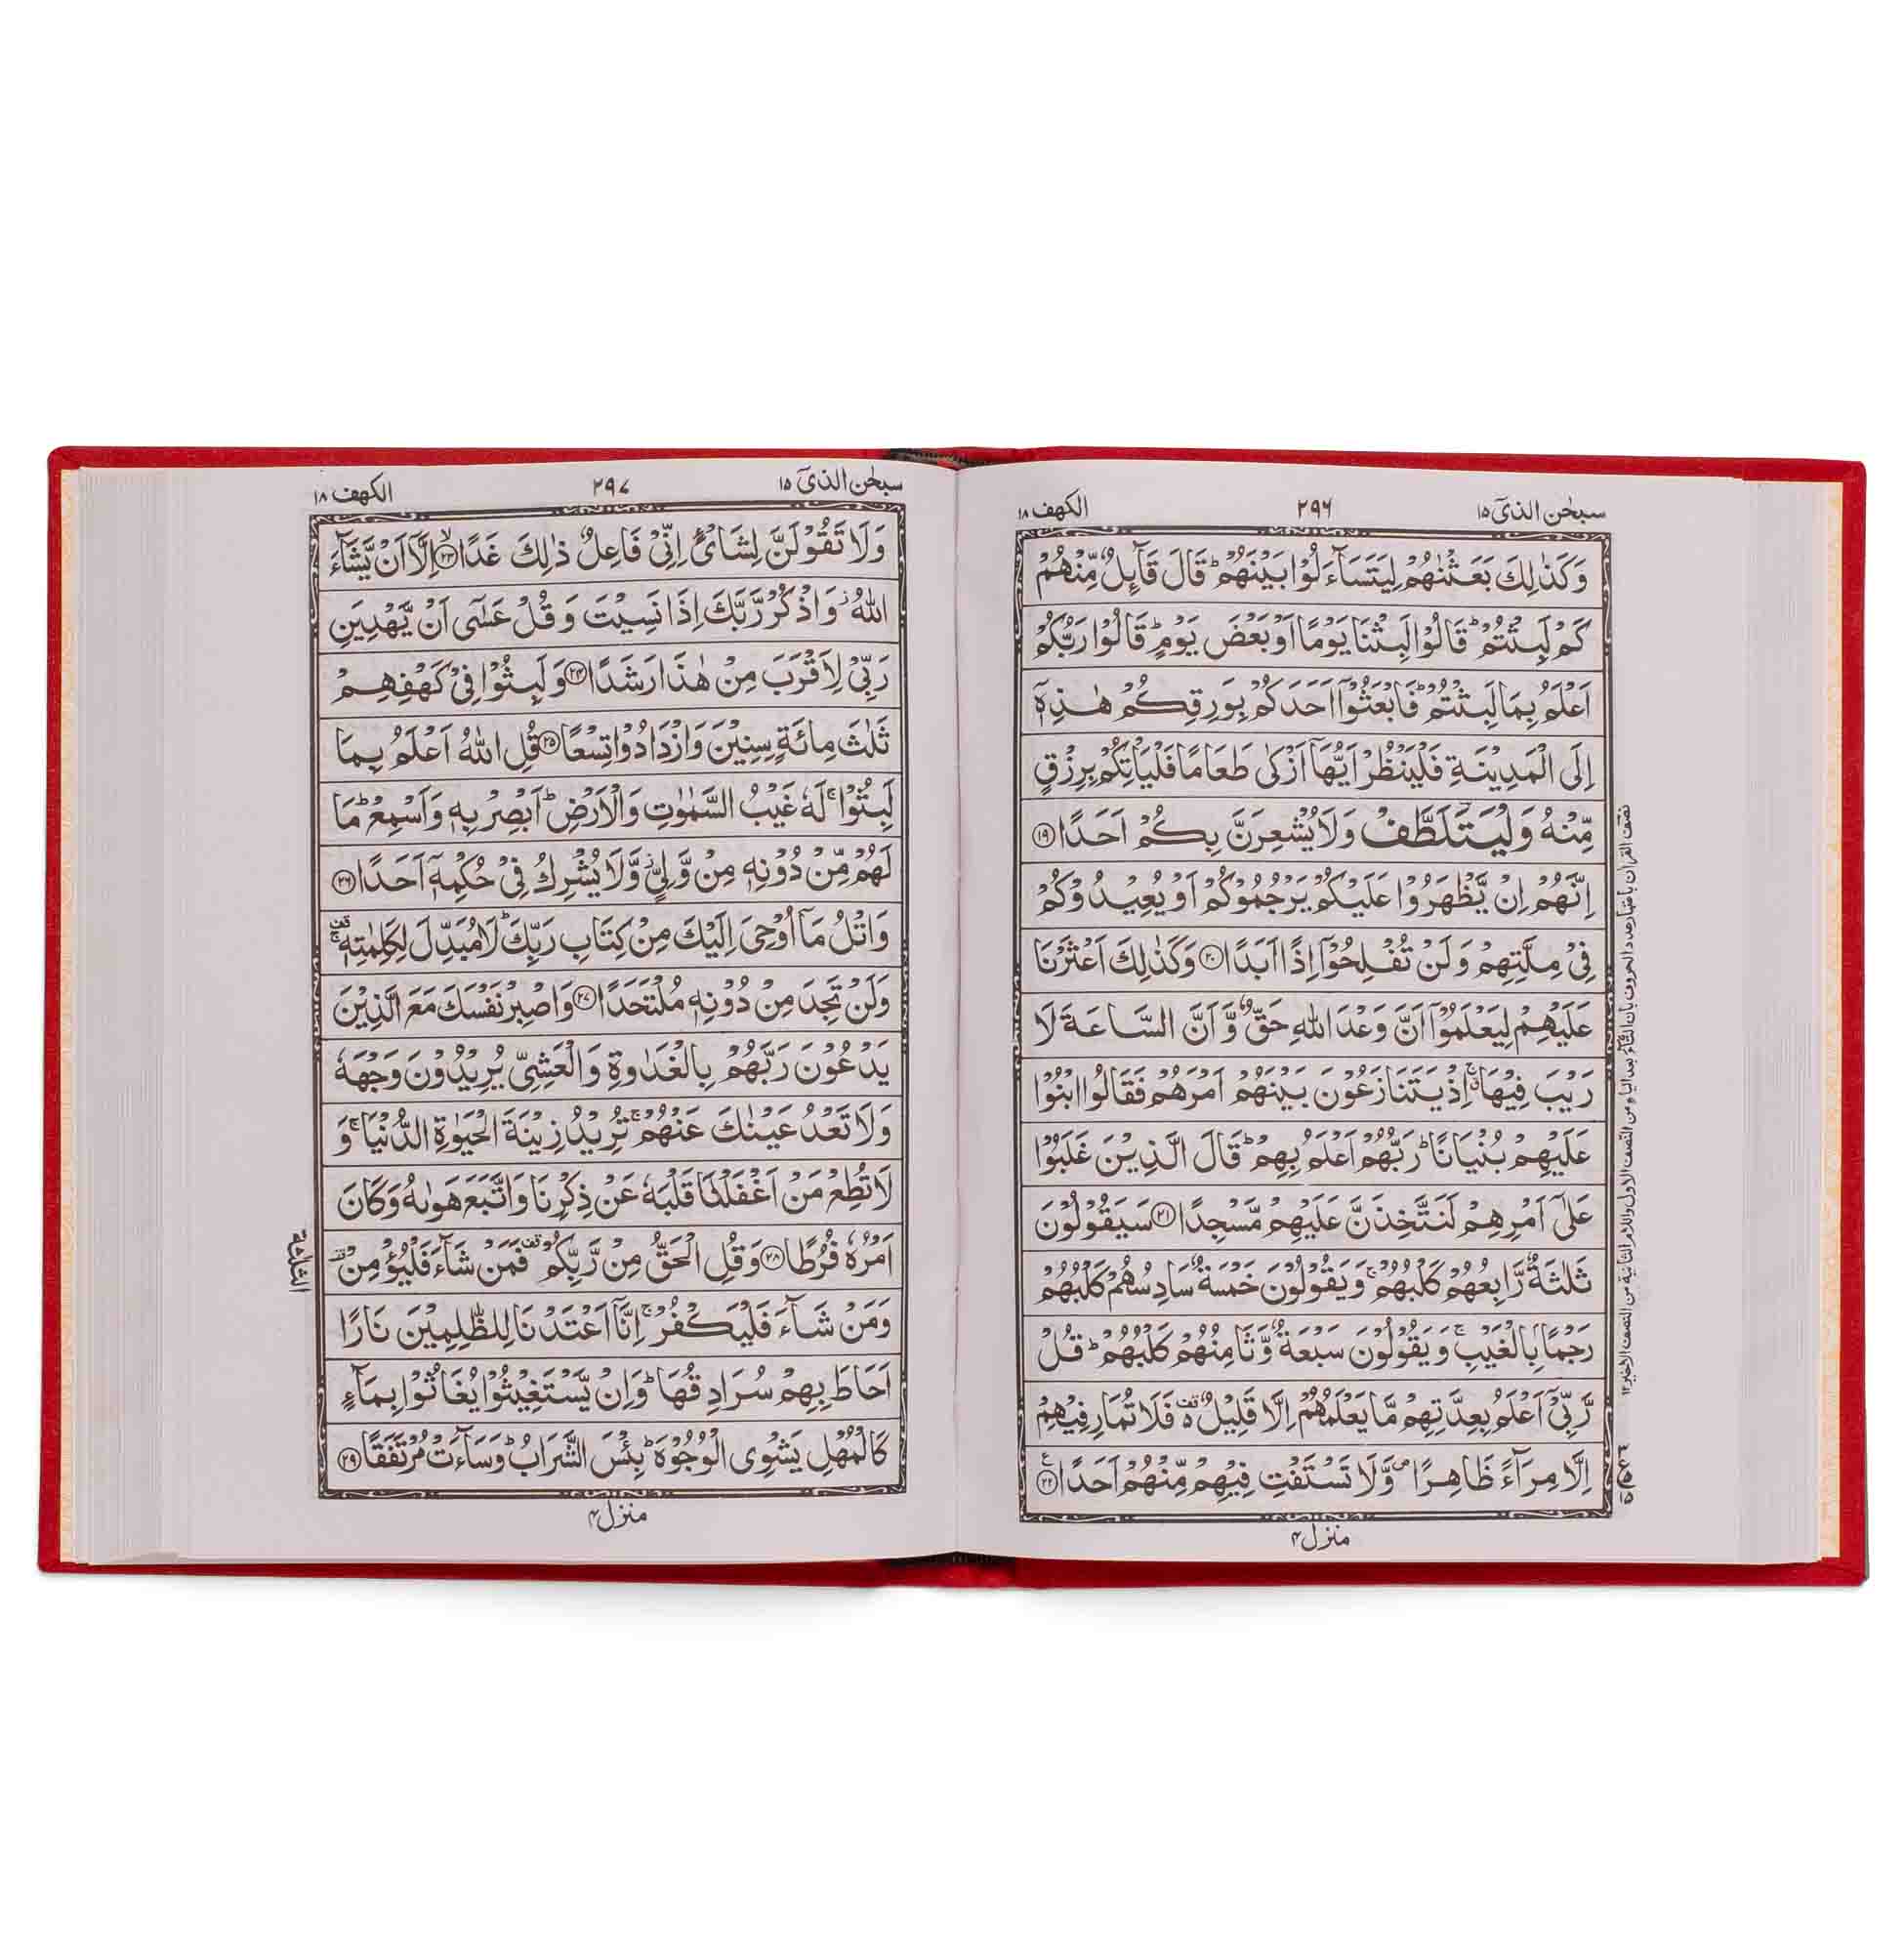 سبحٰن الذیٓ ١٥
٢٩٦
الکهف ١٨
وَكَذٰلِكَ بَعَثْنٰهُمْ لِيَتَسَآءَلُوْا بَيْنَهُمْ ؕ قَالَ قَآئِلٌ مِّنْهُمْ
كَمْ لَبِثْتُمْ ؕ قَالُوْا لَبِثْنَا يَوْمًا اَوْ بَعْضَ يَوْمٍ ؕ قَالُوْا رَبُّكُمْ
اَعْلَمُ بِمَا لَبِثْتُمْ ؕ فَابْعَثُوْۤا اَحَدَكُمْ بِوَرِقِكُمْ هٰذِهٖۤ
اِلَى الْمَدِيْنَةِ فَلْيَنْظُرْ اَيُّهَاۤ اَزْكٰى طَعَامًا فَلْيَاْتِكُمْ بِرِزْقٍ
مِّنْهُ وَلْيَتَلَطَّفْ وَلَا يُشْعِرَنَّ بِكُمْ اَحَدًا ﴿١٩﴾
اِنَّهُمْ اِنْ يَّظْهَرُوْا عَلَيْكُمْ يَرْجُمُوْكُمْ اَوْ يُعِيْدُوْكُمْ
فِيْ مِلَّتِهِمْ وَلَنْ تُفْلِحُوْۤا اِذًا اَبَدًا ﴿٢٠﴾ وَكَذٰلِكَ اَعْثَرْنَا
عَلَيْهِمْ لِيَعْلَمُوْۤا اَنَّ وَعْدَ اللّٰهِ حَقٌّ وَّاَنَّ السَّاعَةَ لَا
رَيْبَ فِيْهَا ۚ اِذْ يَتَنَازَعُوْنَ بَيْنَهُمْ اَمْرَهُمْ فَقَالُوا ابْنُوْا
عَلَيْهِمْ بُنْيَانًا ؕ رَبُّهُمْ اَعْلَمُ بِهِمْ ؕ قَالَ الَّذِيْنَ غَلَبُوْا
عَلٰٓى اَمْرِهِمْ لَنَتَّخِذَنَّ عَلَيْهِمْ مَّسْجِدًا ﴿٢١﴾ سَيَقُوْلُوْنَ
ثَلٰثَةٌ رَّابِعُهُمْ كَلْبُهُمْ ۚ وَيَقُوْلُوْنَ خَمْسَةٌ سَادِسُهُمْ كَلْبُهُمْ
رَجْمًۢا بِالْغَيْبِ ۚ وَيَقُوْلُوْنَ سَبْعَةٌ وَّثَامِنُهُمْ كَلْبُهُمْ ؕ قُلْ
رَّبِّيْۤ اَعْلَمُ بِعِدَّتِهِمْ مَّا يَعْلَمُهُمْ اِلَّا قَلِيْلٌ فَلَا تُمَارِ فِيْهِمْ
اِلَّا مِرَآءً ظَاهِرًا ۪ وَّلَا تَسْتَفْتِ فِيْهِمْ مِّنْهُمْ اَحَدًا ﴿٢٢﴾
نصف القرآن باعتبار عدد الحروف بان التاء بعد الیاء من النصف الاول واللام الثانیة من النصف الاخیر ١٢
منزل ٤
سبحٰن الذیٓ ١٥
٢٩٧
الکهف ١٨
وَلَا تَقُوْلَنَّ لِشَايْءٍ اِنِّيْ فَاعِلٌ ذٰلِكَ غَدًا ﴿٢٣﴾ اِلَّاۤ اَنْ يَّشَآءَ
اللّٰهُ ۫ وَاذْكُرْ رَّبَّكَ اِذَا نَسِيْتَ وَقُلْ عَسٰۤى اَنْ يَّهْدِيَنِ
رَبِّيْ لِاَقْرَبَ مِنْ هٰذَا رَشَدًا ﴿٢٤﴾ وَلَبِثُوْا فِيْ كَهْفِهِمْ
ثَلٰثَ مِائَةٍ سِنِيْنَ وَازْدَادُوْا تِسْعًا ﴿٢٥﴾ قُلِ اللّٰهُ اَعْلَمُ بِمَا
لَبِثُوْا ۚ لَهٗ غَيْبُ السَّمٰوٰتِ وَالْاَرْضِ ؕ اَبْصِرْ بِهٖ وَاَسْمِعْ ؕ مَا
لَهُمْ مِّنْ دُوْنِهٖ مِنْ وَّلِيٍّ ۫ وَّلَا يُشْرِكُ فِيْ حُكْمِهٖۤ اَحَدًا ﴿٢٦﴾
وَاتْلُ مَاۤ اُوْحِيَ اِلَيْكَ مِنْ كِتَابِ رَبِّكَ ؕ لَا مُبَدِّلَ لِكَلِمٰتِهٖ
وَلَنْ تَجِدَ مِنْ دُوْنِهٖ مُلْتَحَدًا ﴿٢٧﴾ وَاصْبِرْ نَفْسَكَ مَعَ الَّذِيْنَ
يَدْعُوْنَ رَبَّهُمْ بِالْغَدٰوةِ وَالْعَشِيِّ يُرِيْدُوْنَ وَجْهَهٗ
وَلَا تَعْدُ عَيْنٰكَ عَنْهُمْ ۚ تُرِيْدُ زِيْنَةَ الْحَيٰوةِ الدُّنْيَا ۚ وَ
لَا تُطِعْ مَنْ اَغْفَلْنَا قَلْبَهٗ عَنْ ذِكْرِنَا وَاتَّبَعَ هَوٰىهُ وَكَانَ
اَمْرُهٗ فُرُطًا ﴿٢٨﴾ وَقُلِ الْحَقُّ مِنْ رَّبِّكُمْ فَمَنْ شَآءَ فَلْيُؤْمِنْ
وَمَنْ شَآءَ فَلْيَكْفُرْ ۚ اِنَّاۤ اَعْتَدْنَا لِلظّٰلِمِيْنَ نَارًا
اَحَاطَ بِهِمْ سُرَادِقُهَا ؕ وَاِنْ يَّسْتَغِيْثُوْا يُغَاثُوْا بِمَآءٍ
كَالْمُهْلِ يَشْوِى الْوُجُوْهَ ؕ بِئْسَ الشَّرَابُ ؕ وَسَآءَتْ مُرْتَفَقًا ﴿٢٩﴾
الثلثة
منزل ٤